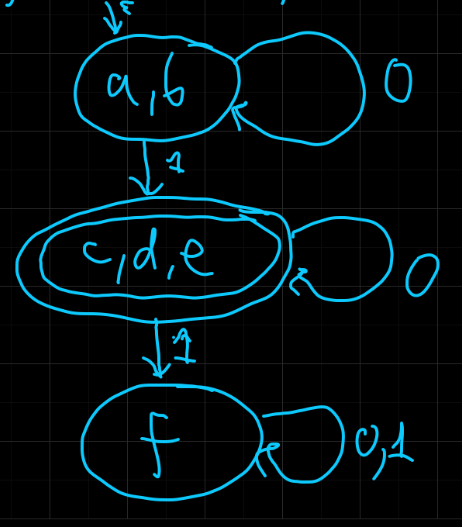 a,b
0
1
c,d,e
0
1
f
0,1